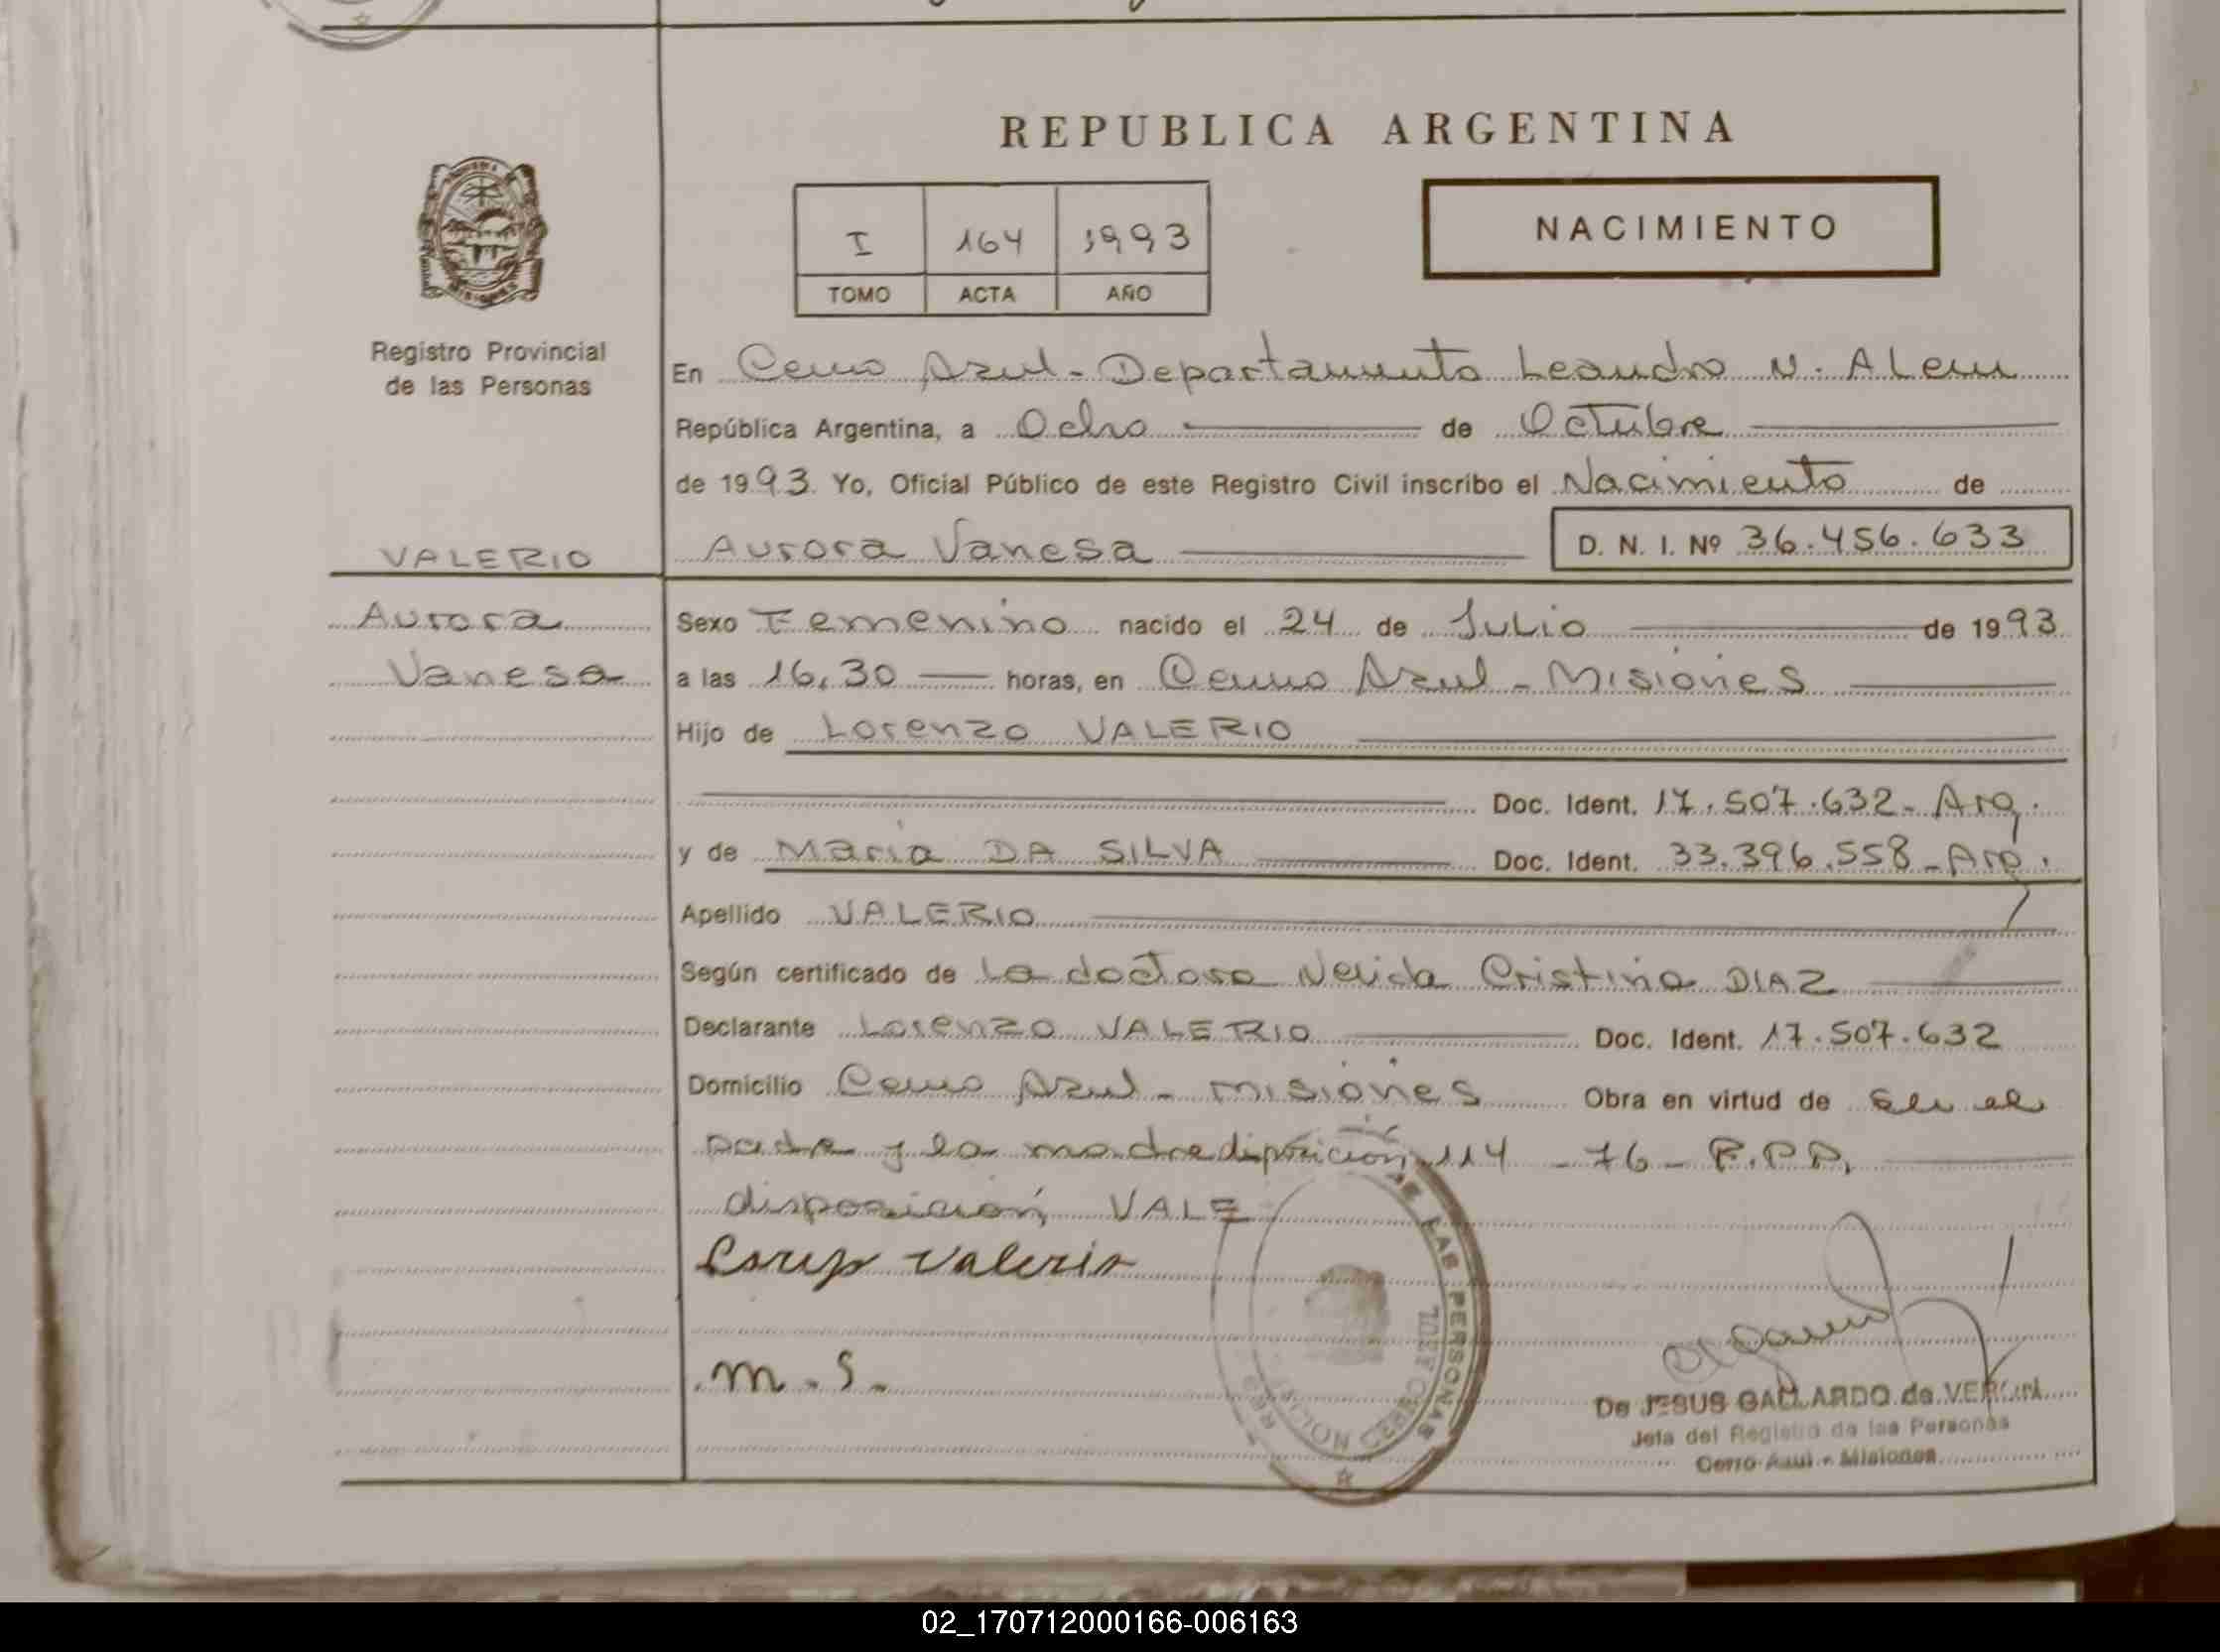 REPUBLICA ARGENTINA
NACIMIENTO
I 164 1993
TOMO ACTA AÑO
Registro Provincial
de las Personas
En Cerro Azul - Departamento Leandro N. Alem
República Argentina, a Ocho de Octubre
de 1993. Yo, Oficial Público de este Registro Civil inscribo el Nacimiento de
VALERIO Aurora Vanesa D. N. I. Nº 36.456.633
Aurora
Vanesa
Sexo Femenino nacido el 24 de Julio de 1993
a las 16,30 horas, en Cerro Azul - Misiones
Hijo de Lorenzo VALERIO
Doc. Ident. 17.507.632 - Arg.
y de Maria DA SILVA Doc. Ident. 33.396.558 - Arg.
Apellido VALERIO
Según certificado de la doctora Nelida Cristina DIAZ
Declarante Lorenzo VALERIO Doc. Ident. 17.507.632
Domicilio Cerro Azul - Misiones Obra en virtud de ser el
padre y la madre disposición 114 - 76 - R.P.P.
disposición VALE
Valerio
m. S.
DE LAS PERSONAS
CERRO AZUL
De JESUS GALLARDO de
Jefa del Registro de las Personas
Cerro Azul - Misiones
02_170712000166-006163